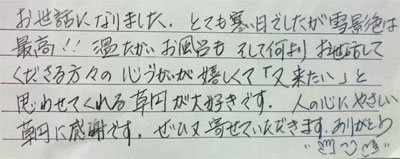 お世話になりました。とても寒い日でしたが雪景色は
最高!!温たかいお風呂も そして何より お世話して
くださる方々の心づかいが嬉しくて「又来たい」と
思わせてくれる草円が大好きです。人の心にやさしい
草円に感謝です。ぜひ又寄せていただきます。ありがとう